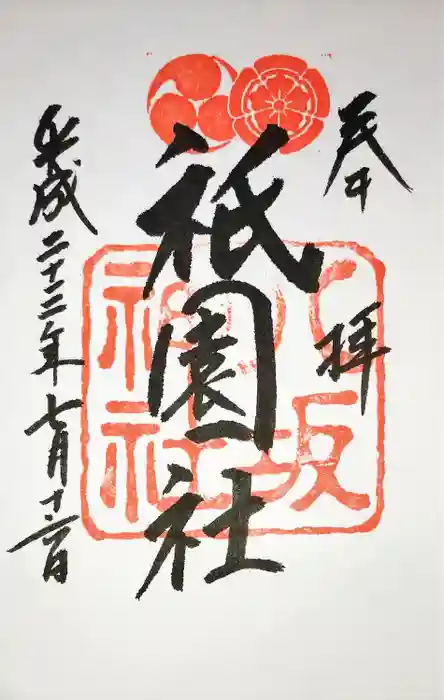 奉拝
祇園社
八坂
神社
平成二十二年七月十六日